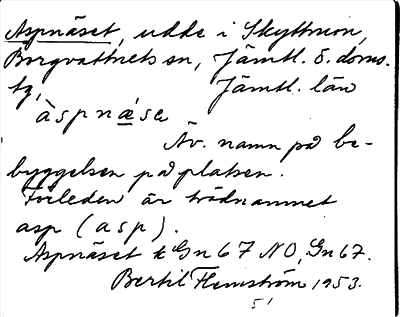 Aspnäset, udde i Skyttmon,
Borgvattnets sn, Jämtl. ö. doms.
tg, Jämtl. län
àspnǽsa
Äv. namn på be-
byggelsen på platsen.
Förleden är trädnamnet
asp (asp).
Aspnäset Gn 67 NO, Gn 67.
Bertil Flemström 1953.
51